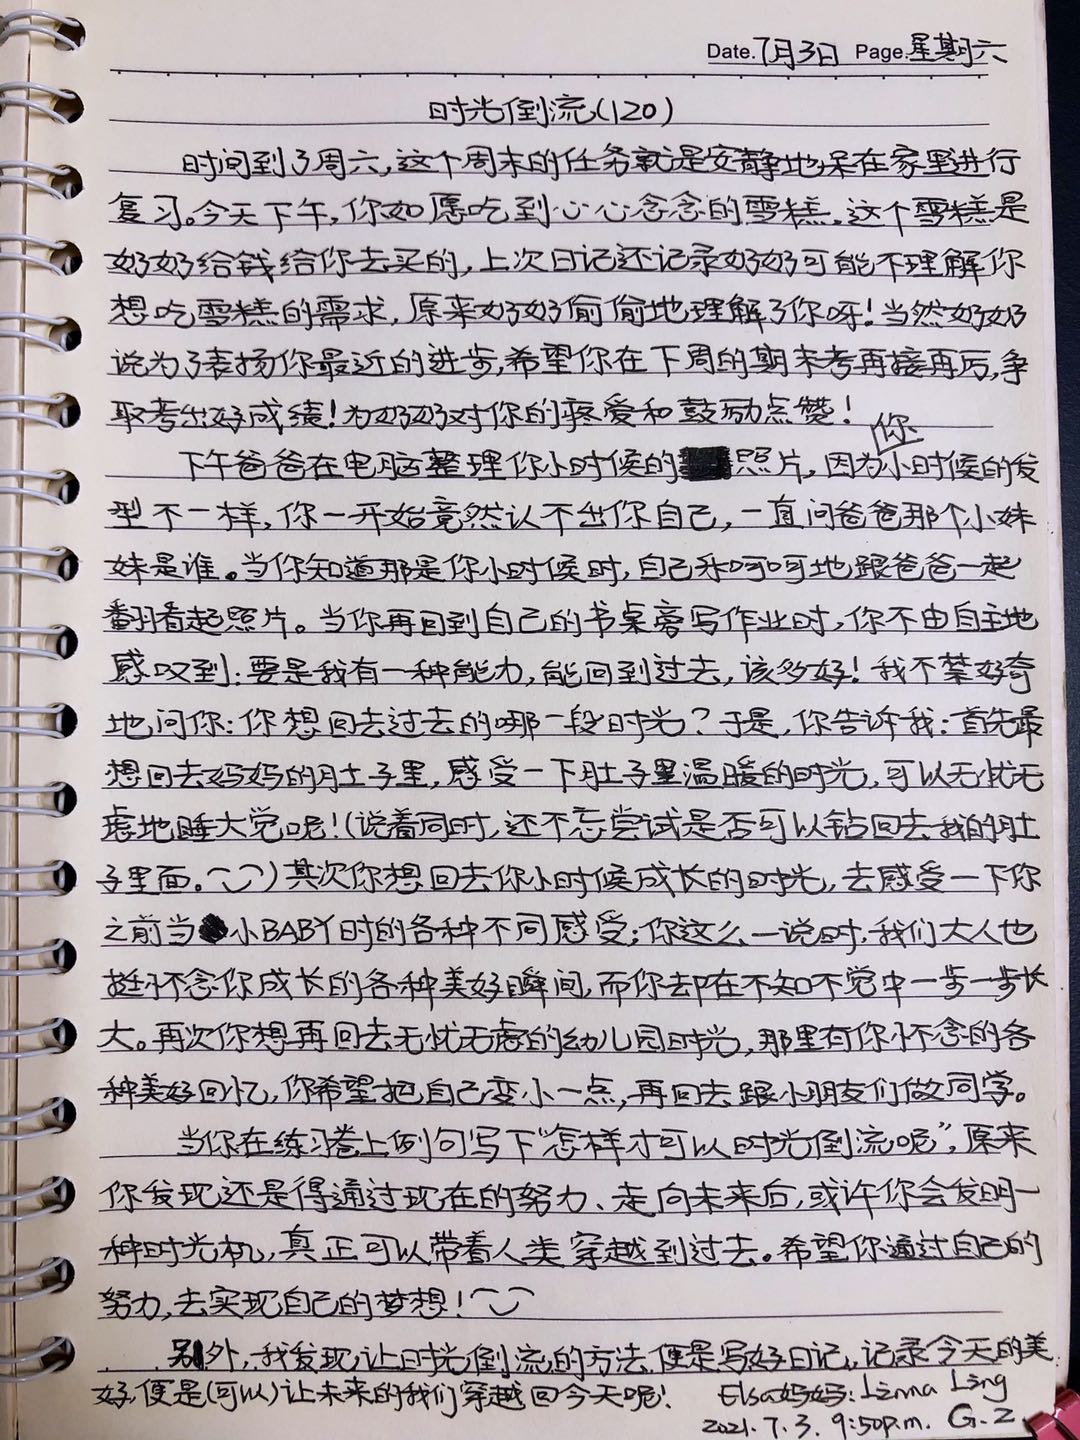 Date. 7月3日 Page. 星期六
时光倒流(120)
时间到了周六,这个周末的任务就是安静地呆在家里进行
复习。今天下午,你如愿吃到心心念念的雪糕。这个雪糕是
奶奶给钱给你去买的,上次日记还记录奶奶可能不理解你
想吃雪糕的需求,原来奶奶偷偷地理解了你呀!当然奶奶
说为了表扬你最近的进步,希望你在下周的期末考再接再厉,争
取考出好成绩!为奶奶对你的疼爱和鼓励点赞!
下午爸爸在电脑整理你小时候的照片,因为你小时候的发
型不一样,你一开始竟然认不出你自己,一直问爸爸那个小妹
妹是谁。当你知道那是你小时候时,自己乐呵呵地跟爸爸一起
翻看起照片。当你再回到自己的书桌旁写作业时,你不由自主地
感叹到:要是我有一种能力,能回到过去,该多好!我不禁好奇
地问你:你想回去过去的哪一段时光?于是,你告诉我:首先最
想回去妈妈的肚子里,感受一下肚子里温暖的时光,可以无忧无
虑地睡大觉呢!(说着同时,还不忘尝试是否可以钻回去我的肚
子里面。)其次你想回去你小时候成长的时光,去感受一下你
之前当小BABY时的各种不同感受;你这么一说时,我们大人也
挺怀念你成长的各种美好瞬间,而你却在不知不觉中一步一步长
大。再次你想再回去无忧无虑的幼儿园时光,那里有你怀念的各
种美好回忆,你希望把自己变小一点,再回去跟小朋友们做同学。
当你在练习卷上例句写下“怎样才可以时光倒流呢”,原来
你发现还是得通过现在的努力、走向未来后,或许你会发明一
种时光机,真正可以带着人类穿越到过去。希望你通过自己的
努力,去实现自己的梦想!
另外,我发现让时光倒流的方法便是写好日记,记录今天的美
好,便是(可以)让未来的我们穿越回今天呢! Elsa妈妈: Linna Ling
2021.7.3. 9:50p.m. G.Z